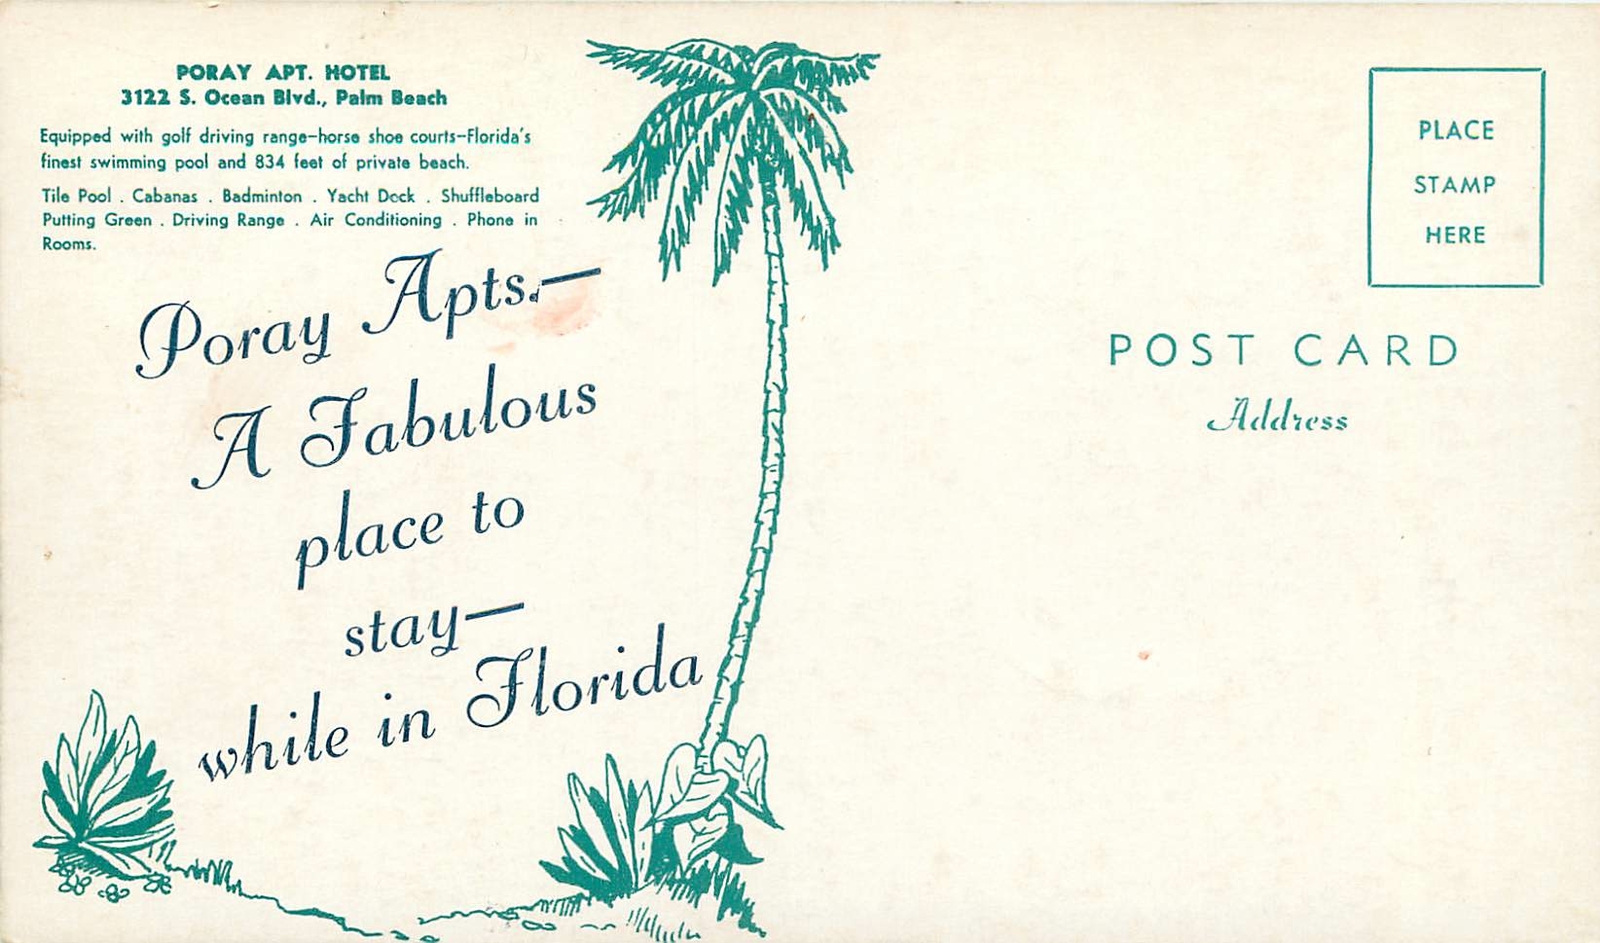 PORAY APT. HOTEL
3122 S. Ocean Blvd., Palm Beach
Equipped with golf driving range-horse shoe courts-Florida's
finest swimming pool and 834 feet of private beach.
Tile Pool . Cabanas . Badminton . Yacht Dock . Shuffleboard
Putting Green . Driving Range . Air Conditioning . Phone in
Rooms.
Poray Apts.—
A Fabulous
place to
stay—
while in Florida
PLACE
STAMP
HERE
POST CARD
Address